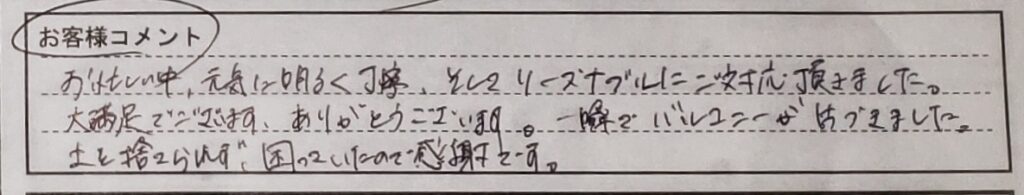 お客様コメント
お忙しい中、元気に明るく丁寧、そしてリーズナブルにご対応頂きました。
大満足でございます、ありがとうございます。一瞬でバルコニーが片づきました。
土を捨てられず、困っていたので感謝です。